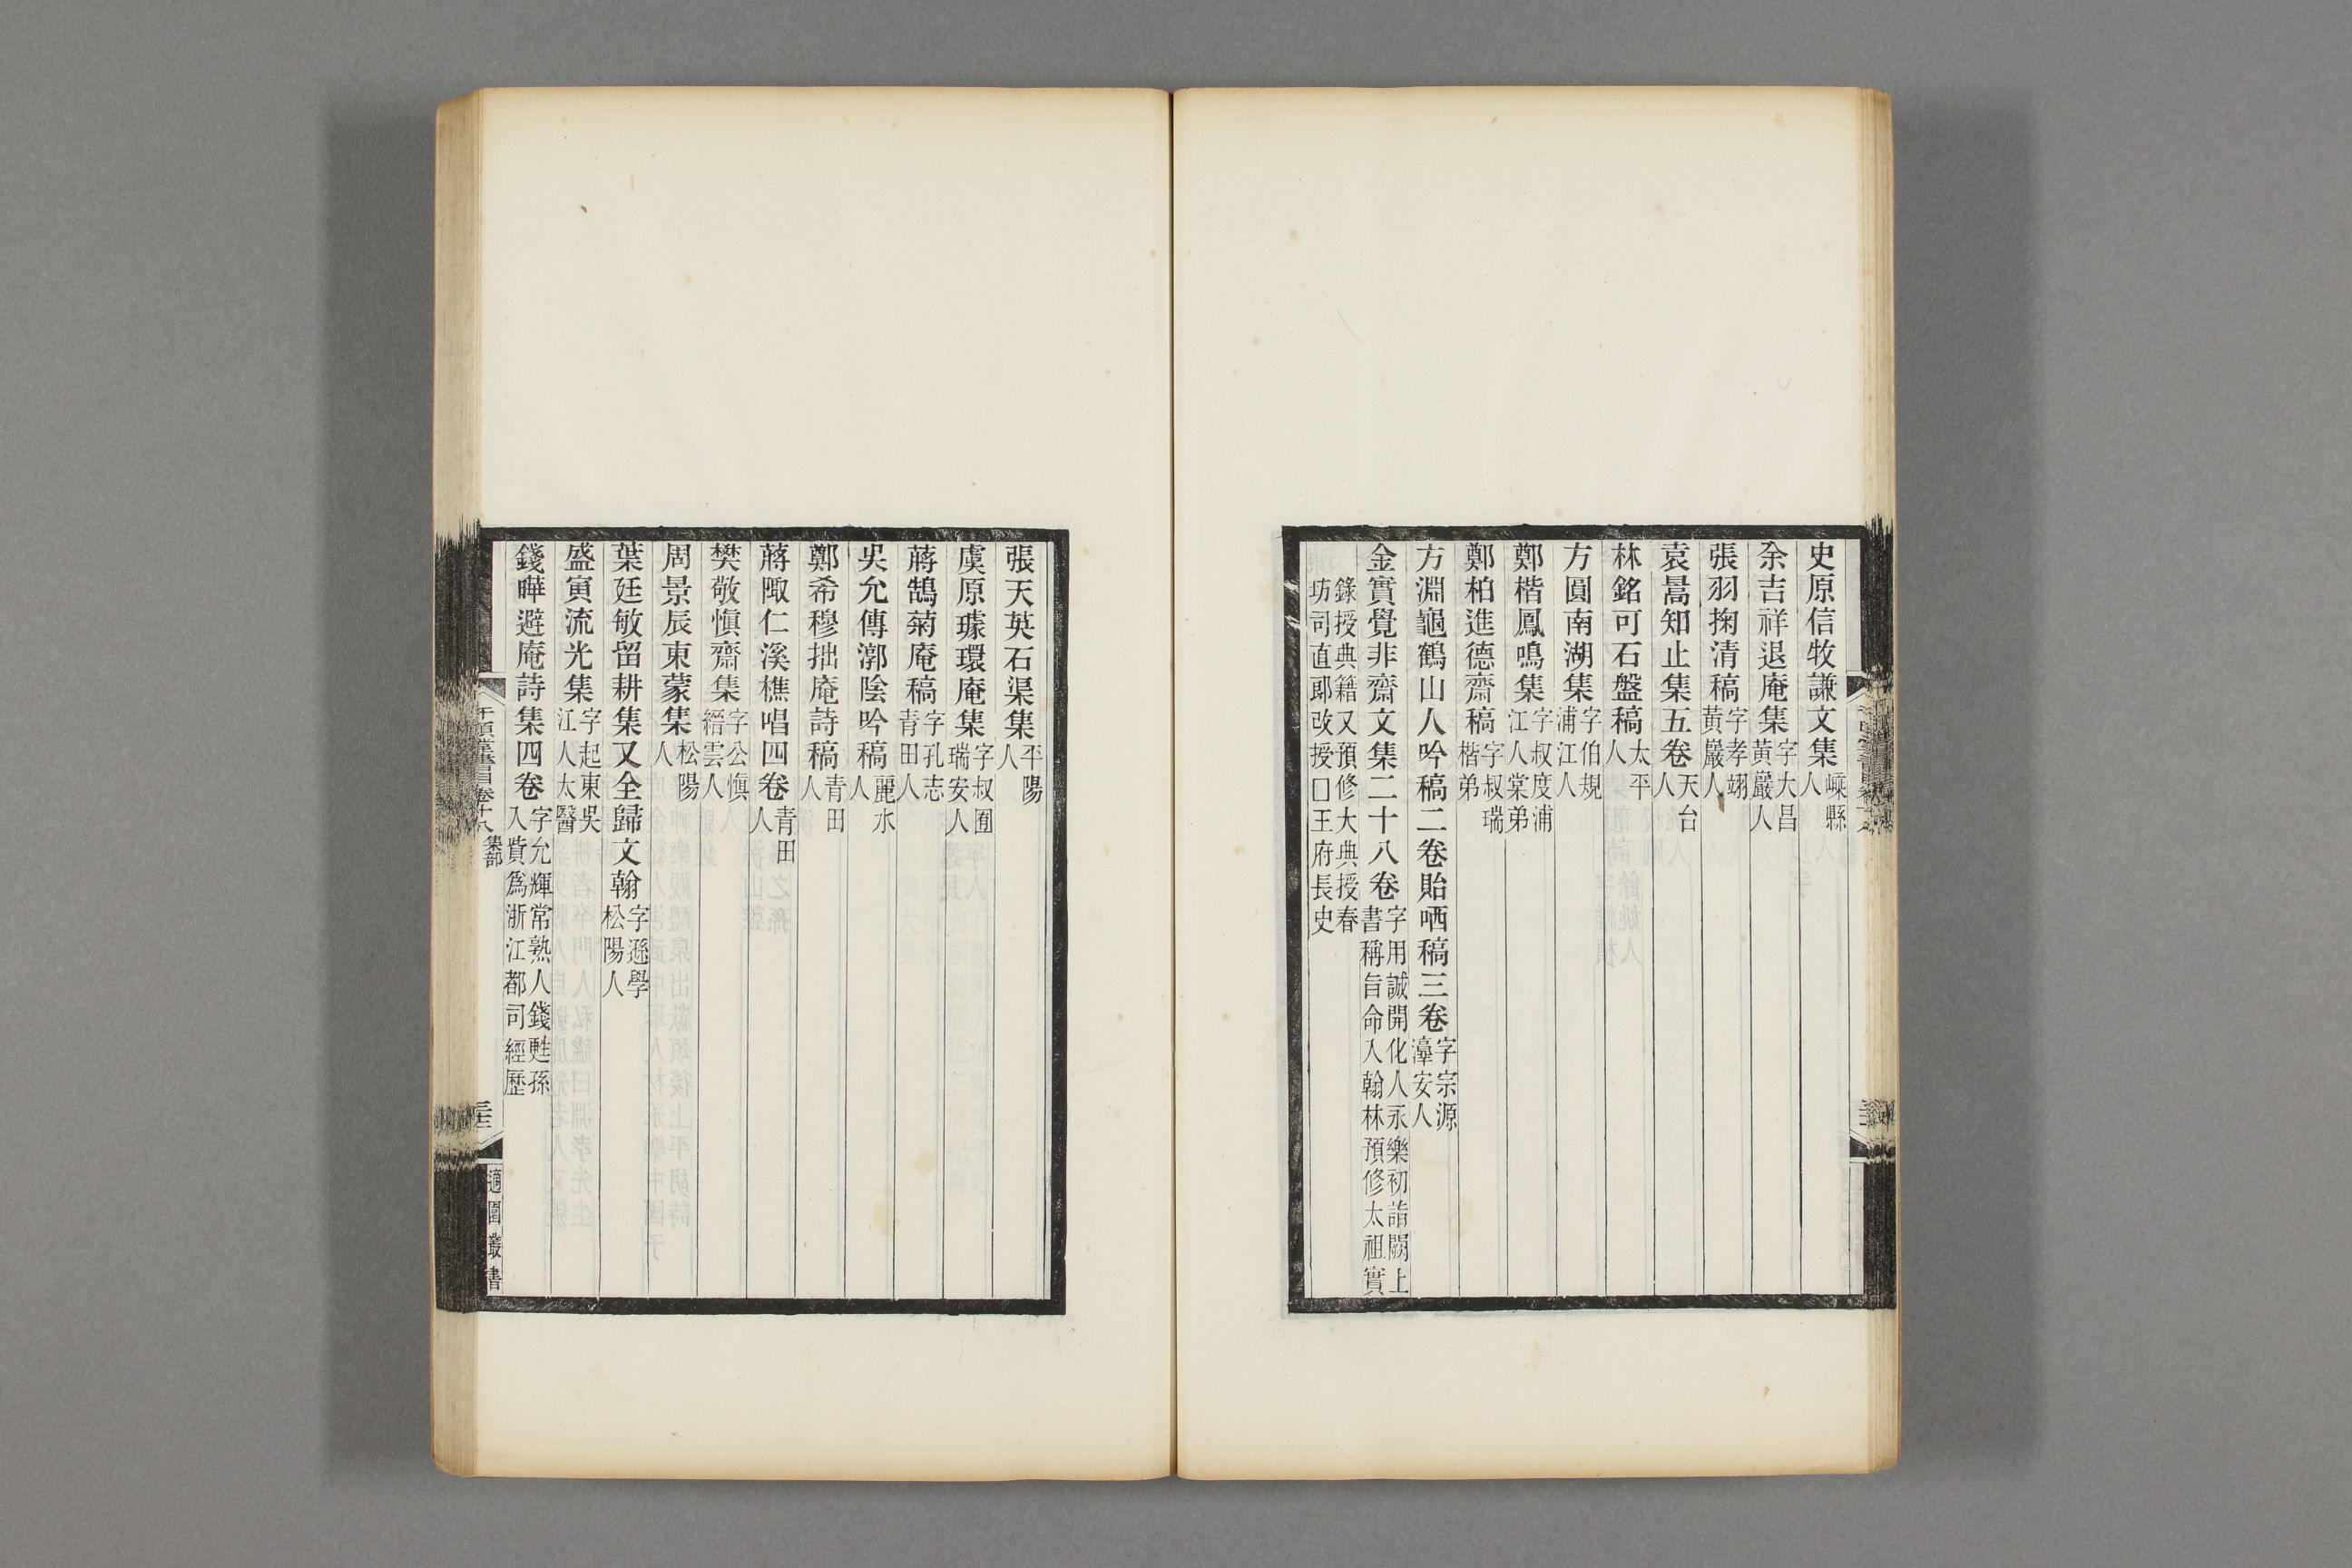 史原信牧謙文集嵊縣人
余吉祥退庵集字大昌黃巖人
張羽掬清稿字孝翊黃巖人
袁暠知止集五卷天台人
林銘可石盤稿太平人
方圓南湖集字伯規浦江人
鄭楷鳳鳴集字叔度浦江人棠弟
鄭柏進德齋稿字叔瑞楷弟
方淵龜鶴山人吟稿二卷貽哂稿三卷字宗源淳安人
金實覺非齋文集二十八卷字用誠開化人永樂初詣闕上書稱旨命入翰林預修太祖實
錄授典籍又預修大典授春坊司直郞改授□王府長史
張天英石渠集平陽人
虞原璩環庵集字叔囿瑞安人
蔣鵠菊庵稿字孔志青田人
吳允傳漷陰吟稿麗水人
鄭希穆拙庵詩稿青田人
蔣陬仁溪樵唱四卷青田人
樊敬愼齋集字公愼縉雲人
周景辰東蒙集松陽人
葉廷敏留耕集又全歸文翰字遜學松陽人
盛寅流光集字起東吳江人太醫
錢曄避庵詩集四卷字允輝常熟人錢甦孫入貲爲浙江都司經歷
千頃堂書目卷十八 集部
三三
適園叢書